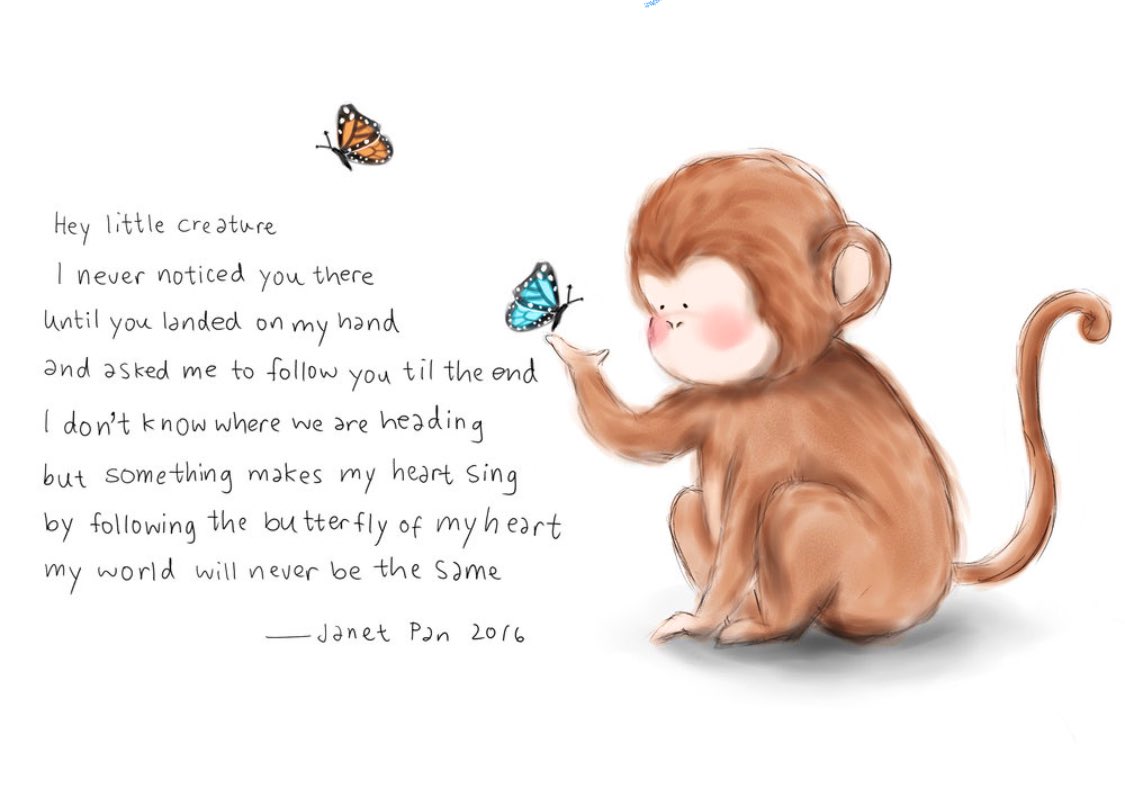 Hey little creature
I never noticed you there
Until you landed on my hand
and asked me to follow you til the end
I don't know where we are heading
but something makes my heart sing
by following the butterfly of my heart
my world will never be the same
—Janet Pan 2016